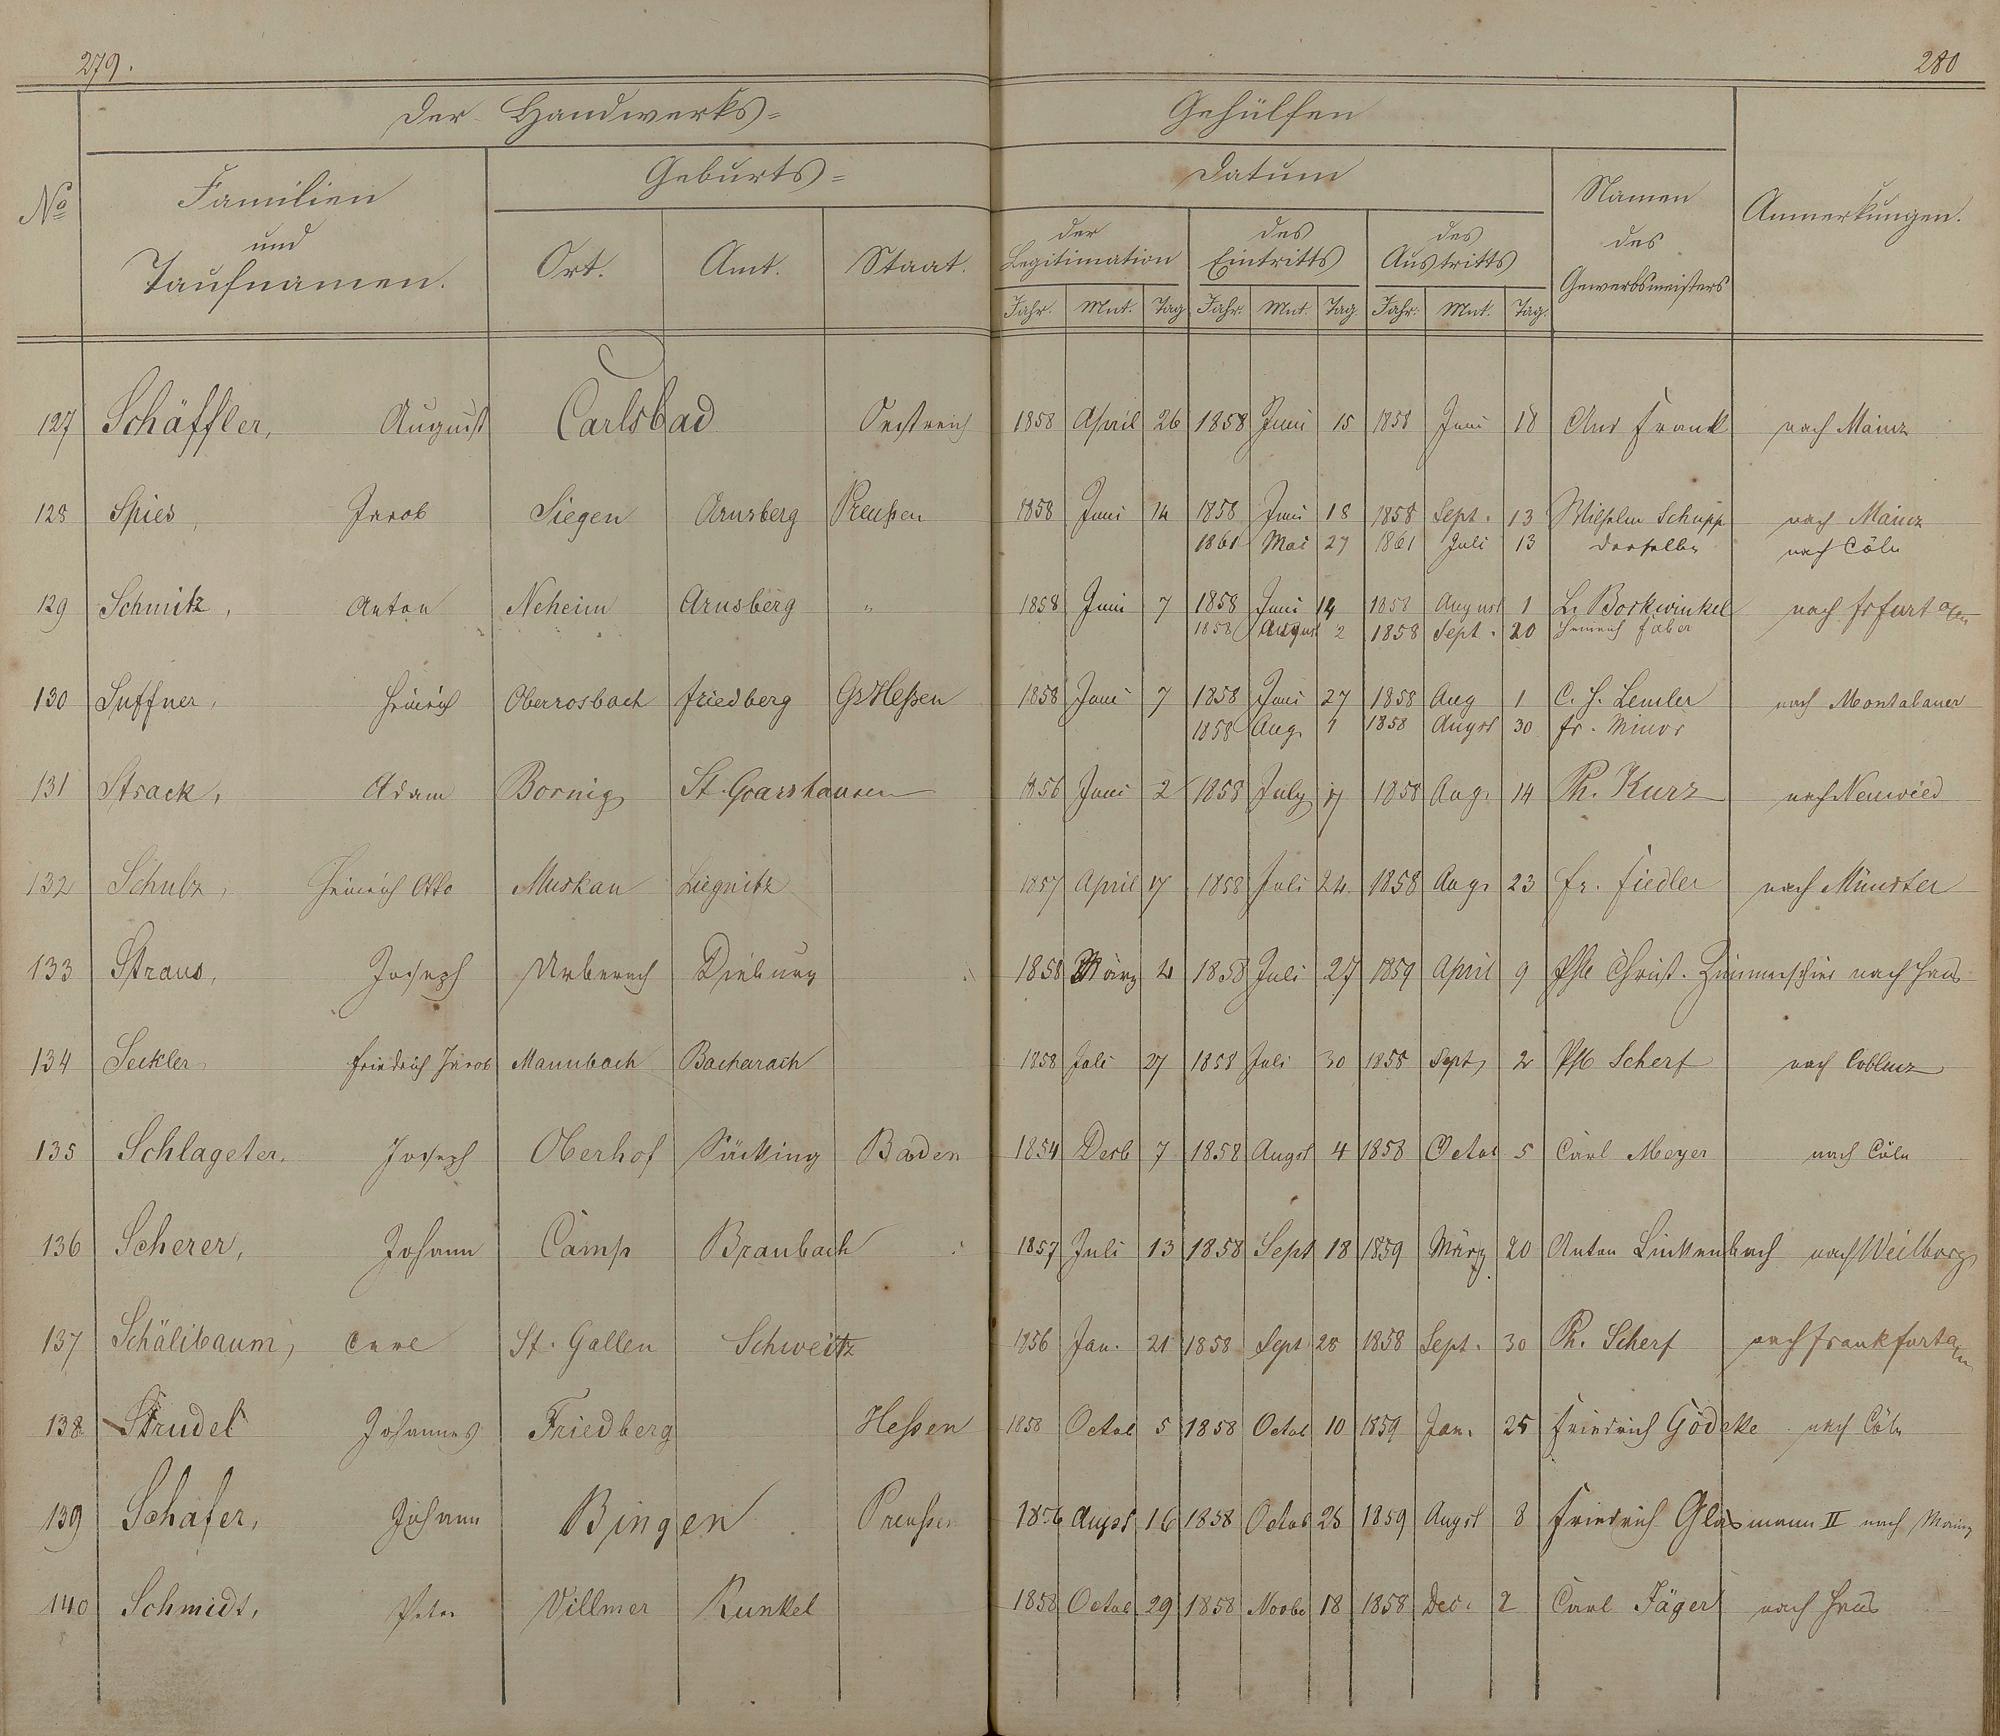 279.
280
Der Handwerks=
Gehülfen
No
Familien
und
Taufnamen.
Geburts=
Ort.
Amt.
Staat.
Datum
der
Legitimation
des
Eintritts
des
Austritts
Jahr. Mnt. Tag Jahr. Mnt. Tag Jahr. Mnt. Tag.
Namen
des
Gewerbsmeisters
Anmerkungen.
127 Schäffler, August Carlsbad Oestreich 1858 April 26 1858 Juni 15 1858 Juni 18 And Frank nach Mainz
128 Spies, Jacob Siegen Arnsberg Preußen 1858 Juni 14 1858 Juni 18 1858 Sept. 13 Wilhelm Schupp nach Mainz
1861 Mai 27 1861 Juli 13 derselbe nach Cöln
129 Schmitz, Anton Neheim Arnsberg " 1858 Juni 7 1858 Juni 14 1858 August 1 L. Borkwinkel nach Frfurt
1858 August 2 1858 Sept. 20 Heinrich Faber
130 Suffner, Heinrich Oberrosbach Friedberg Gr Heßen 1858 Juni 7 1858 Juni 27 1858 Aug 1 C. H. Lemler nach Montabauer
1858 Aug. 1 1858 Augst 30 Fr. Minor
131 Strack, Adam Bornig St. Goarshausen 1856 Juni 2 1858 July 17 1858 Aug. 14 Ph. Kurz nach Neuwied
132 Schulz, Heinrich Otto Muskau Liegnitz 1857 April 17 1858 Juli 24. 1858 Aug. 23 Fr. Fiedler nach Münster
133 Straus, Joseph Urberach Dieburg 1858 März 2 1858 Juli 27 1859 April 9 Christ. Zimmerschied nach Haus
134 Seckler Friedrich Jacob Mannbach Bacharach 1858 Juli 27 1858 Juli 30 1858 Sept 2 Scherf nach Coblenz
135 Schlageter, Joseph Oberhof Säcking Baden 1854 Decb 7 1858 Augst 4 1858 Octob 5 Carl Meyer nach Cöln
136 Scherer, Johann Camp Braubach 1857 Juli 13 1858 Sept 18 1859 März 20 Anton Linkenbach nach Weilburg
137 Schälibaum, Carl St. Gallen Schweitz 1856 Jan. 21 1858 Sept 28 1858 Sept. 30 Ph. Scherf nach Frankfurt
138 Strudel Johannes Friedberg Heßen 1858 Octob 5 1858 Octob 10 1859 Jan. 25 Friedrich Gödecke nach Cöln
139 Schäfer, Johann Bingen Preußen 1856 Augst 16 1858 Octob 25 1859 Augst 8 Friedrich Glasmann II nach Mainz
140 Schmidt, Peter Villmer Runkel 1858 Octob 29 1858 Novbr 18 1858 Dec. 2 Carl Jäger nach Haus